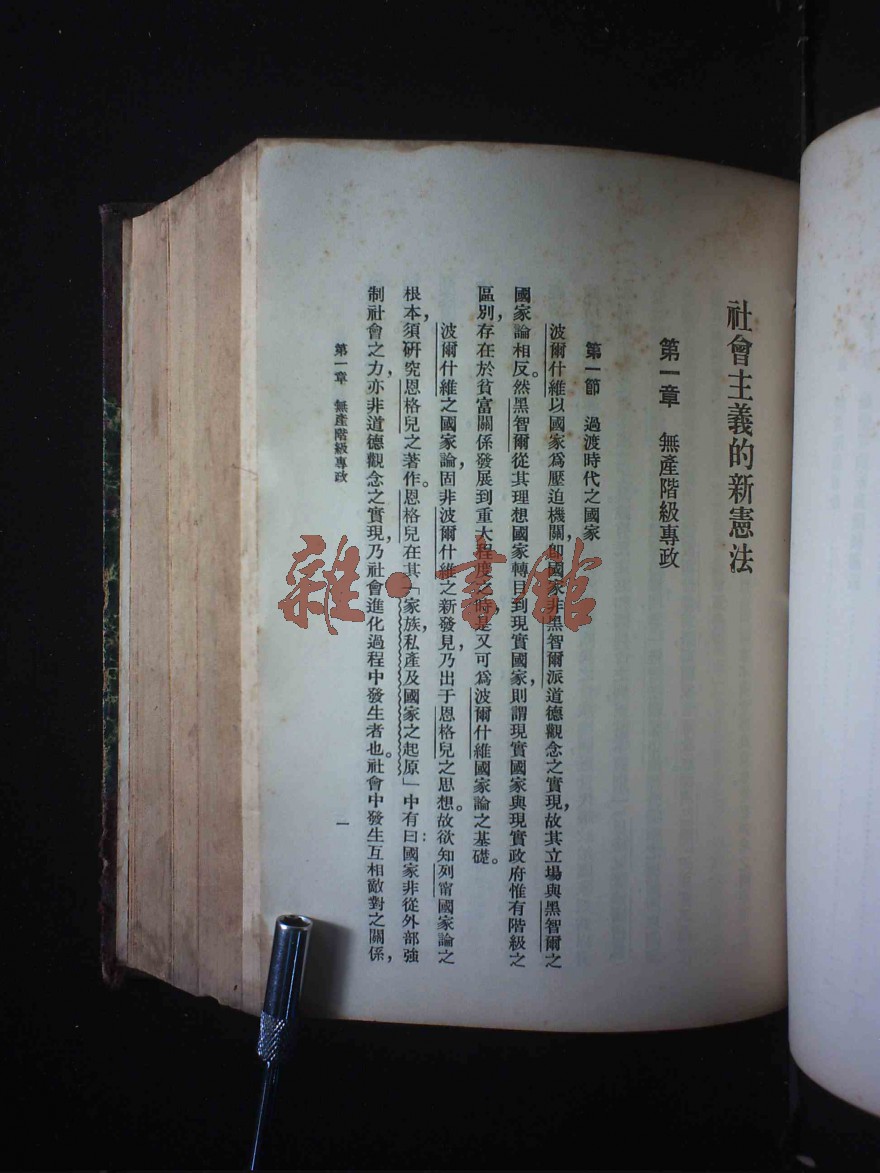 社會主義的新憲法
第一章　無產階級專政
第一節　過渡時代之國家
波爾什維以國家爲壓迫機關，卽國家非黑智爾派道德觀念之實現，故其立場與黑智爾之
國家論相反。然黑智爾從其理想國家轉目到現實國家，則謂現實國家與現實政府惟有階級之
區別，存在於貧富關係發展到重大程度之時，是又可爲波爾什維國家論之基礎。
波爾什維之國家論，固非波爾什維之新發見，乃出于恩格兒之思想。故欲知列甯國家論之
根本，須研究恩格兒之著作。恩格兒在其「家族，私產及國家之起原」中有曰：國家非從外部強
制社會之力，亦非道德觀念之實現，乃社會進化過程中發生者也。社會中發生互相敵對之關係，
第一章　無產階級專政
一
雜·書館